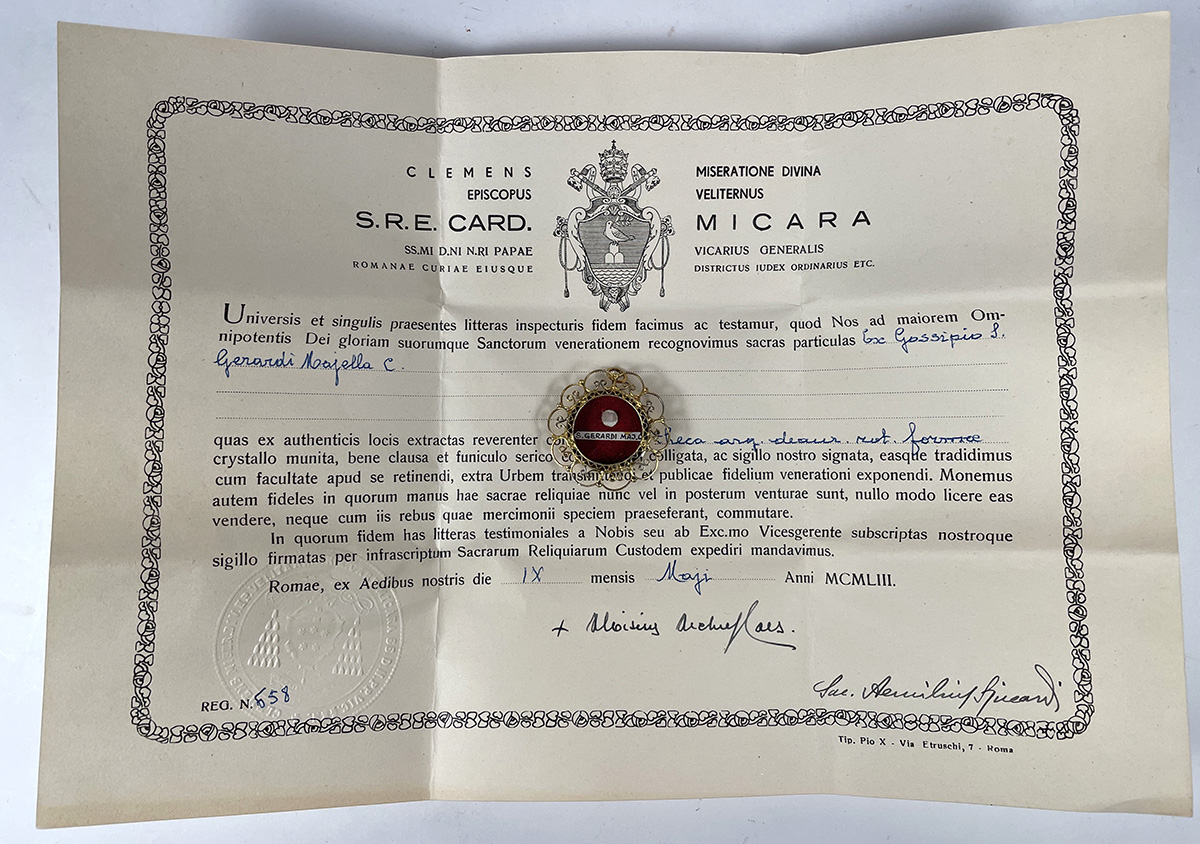 CLEMENS MISERATIONE DIVINA
EPISCOPUS VELITERNUS
S.R.E. CARD. MICARA
SS.MI D.NI N.RI PAPAE VICARIUS GENERALIS
ROMANAE CURIAE EIUSQUE DISTRICTUS IUDEX ORDINARIUS ETC.
Universis et singulis praesentes litteras inspecturis fidem facimus ac testamur, quod Nos ad maiorem Om-
nipotentis Dei gloriam suorumque Sanctorum venerationem recognovimus sacras particulas Ex Gossipio S.
Gerardi Majella C.
S. GERARDI MAJ. C
quas ex authenticis locis extractas reverenter heca arg. deaur. rot. formae
crystallo munita, bene clausa et funiculo serico colligata, ac sigillo nostro signata, easque tradidimus
cum facultate apud se retinendi, extra Urbem et publicae fidelium venerationi exponendi. Monemus
autem fideles in quorum manus hae sacrae reliquiae nunc vel in posterum venturae sunt, nullo modo licere eas
vendere, neque cum iis rebus quae mercimonii speciem praeseferant, commutare.
In quorum fidem has litteras testimoniales a Nobis seu ab Exc.mo Vicesgerente subscriptas nostroque
sigillo firmatas per infrascriptum Sacrarum Reliquiarum Custodem expediri mandavimus.
Romae, ex Aedibus nostris die IX mensis Maji Anni MCMLIII.
+ Aloisius
Sac. Aemilius
REG. N. 658
Tip. Pio X - Via Etruschi, 7 - Roma